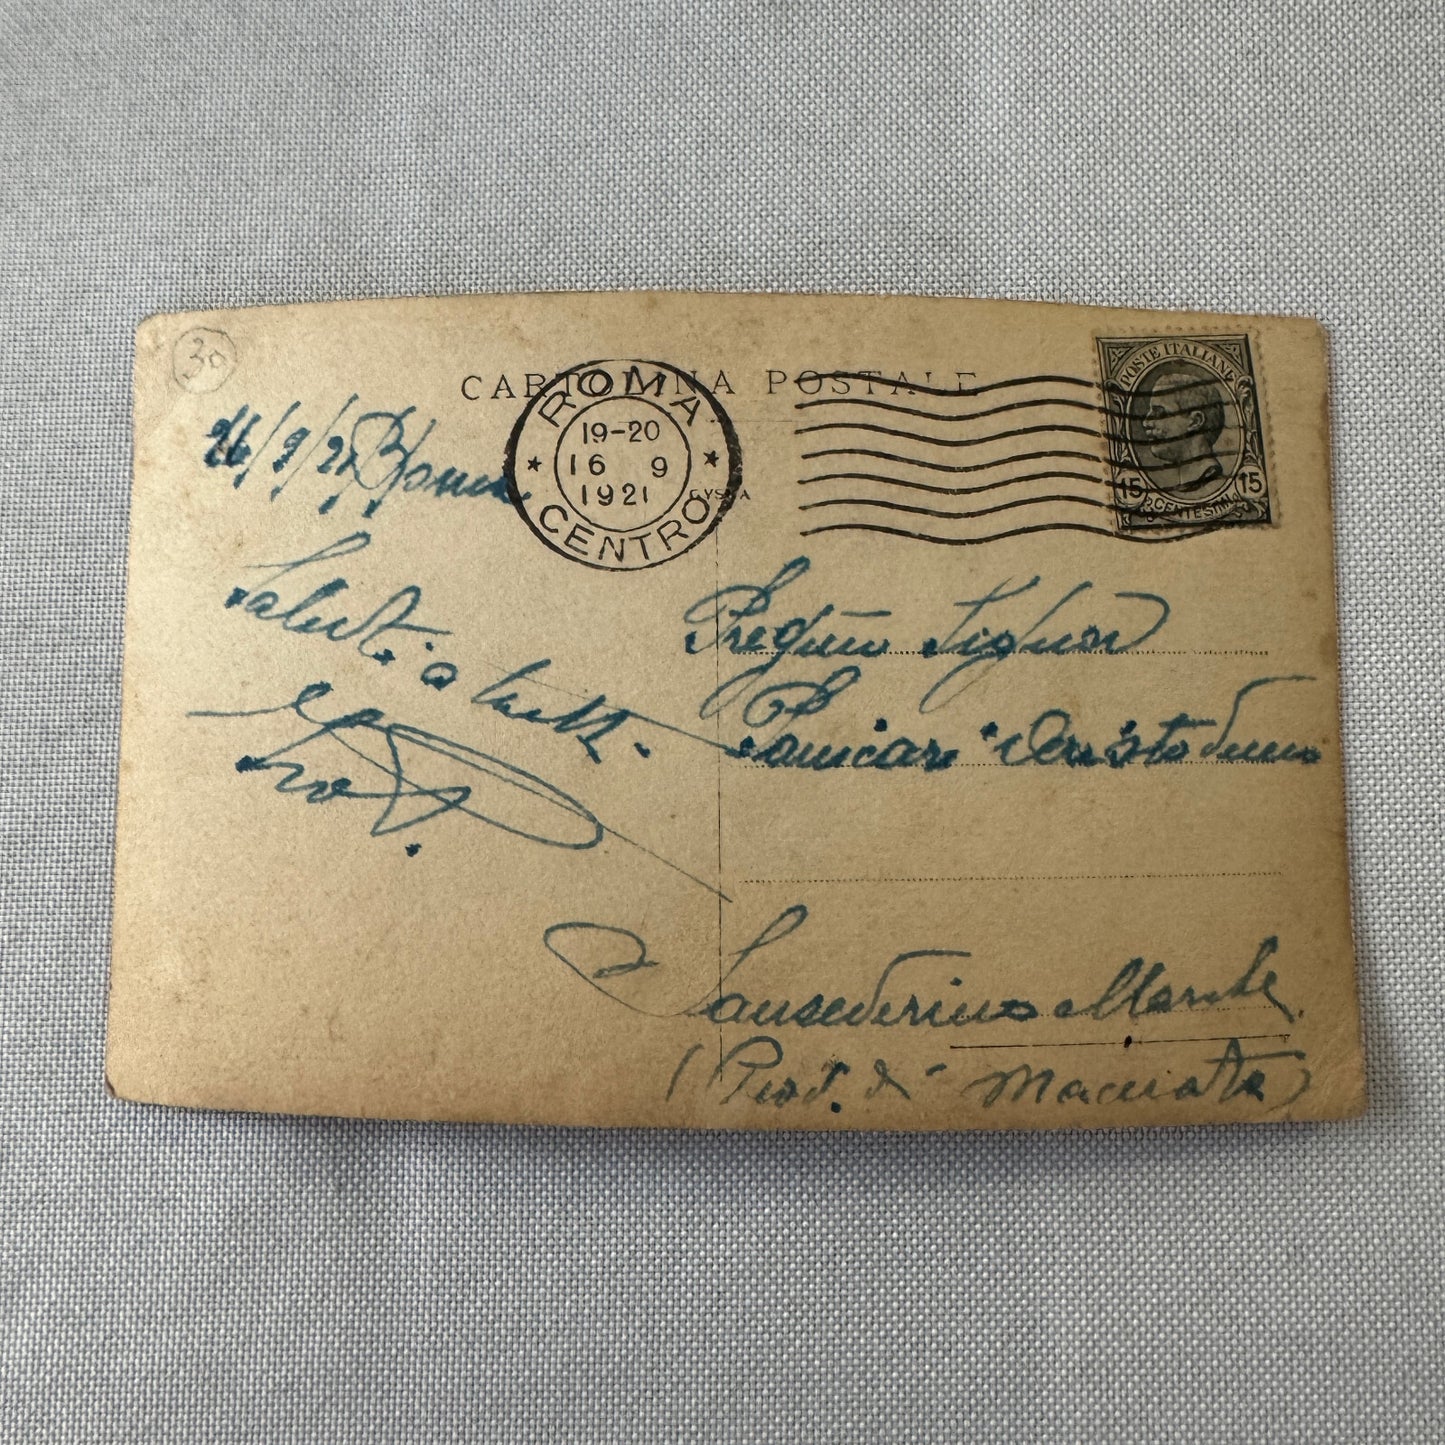 30
CARTOLINA POSTALE
ROMA
19-20
16 9
1921
CENTRO
POSTE ITALIANE
15 15
CENTESIMI
16/9/21 Roma
Saluti a tutti
Pregmo Signor
Panicari Cristofmo
Sanseverino Marche
(Prov. di Macerata)